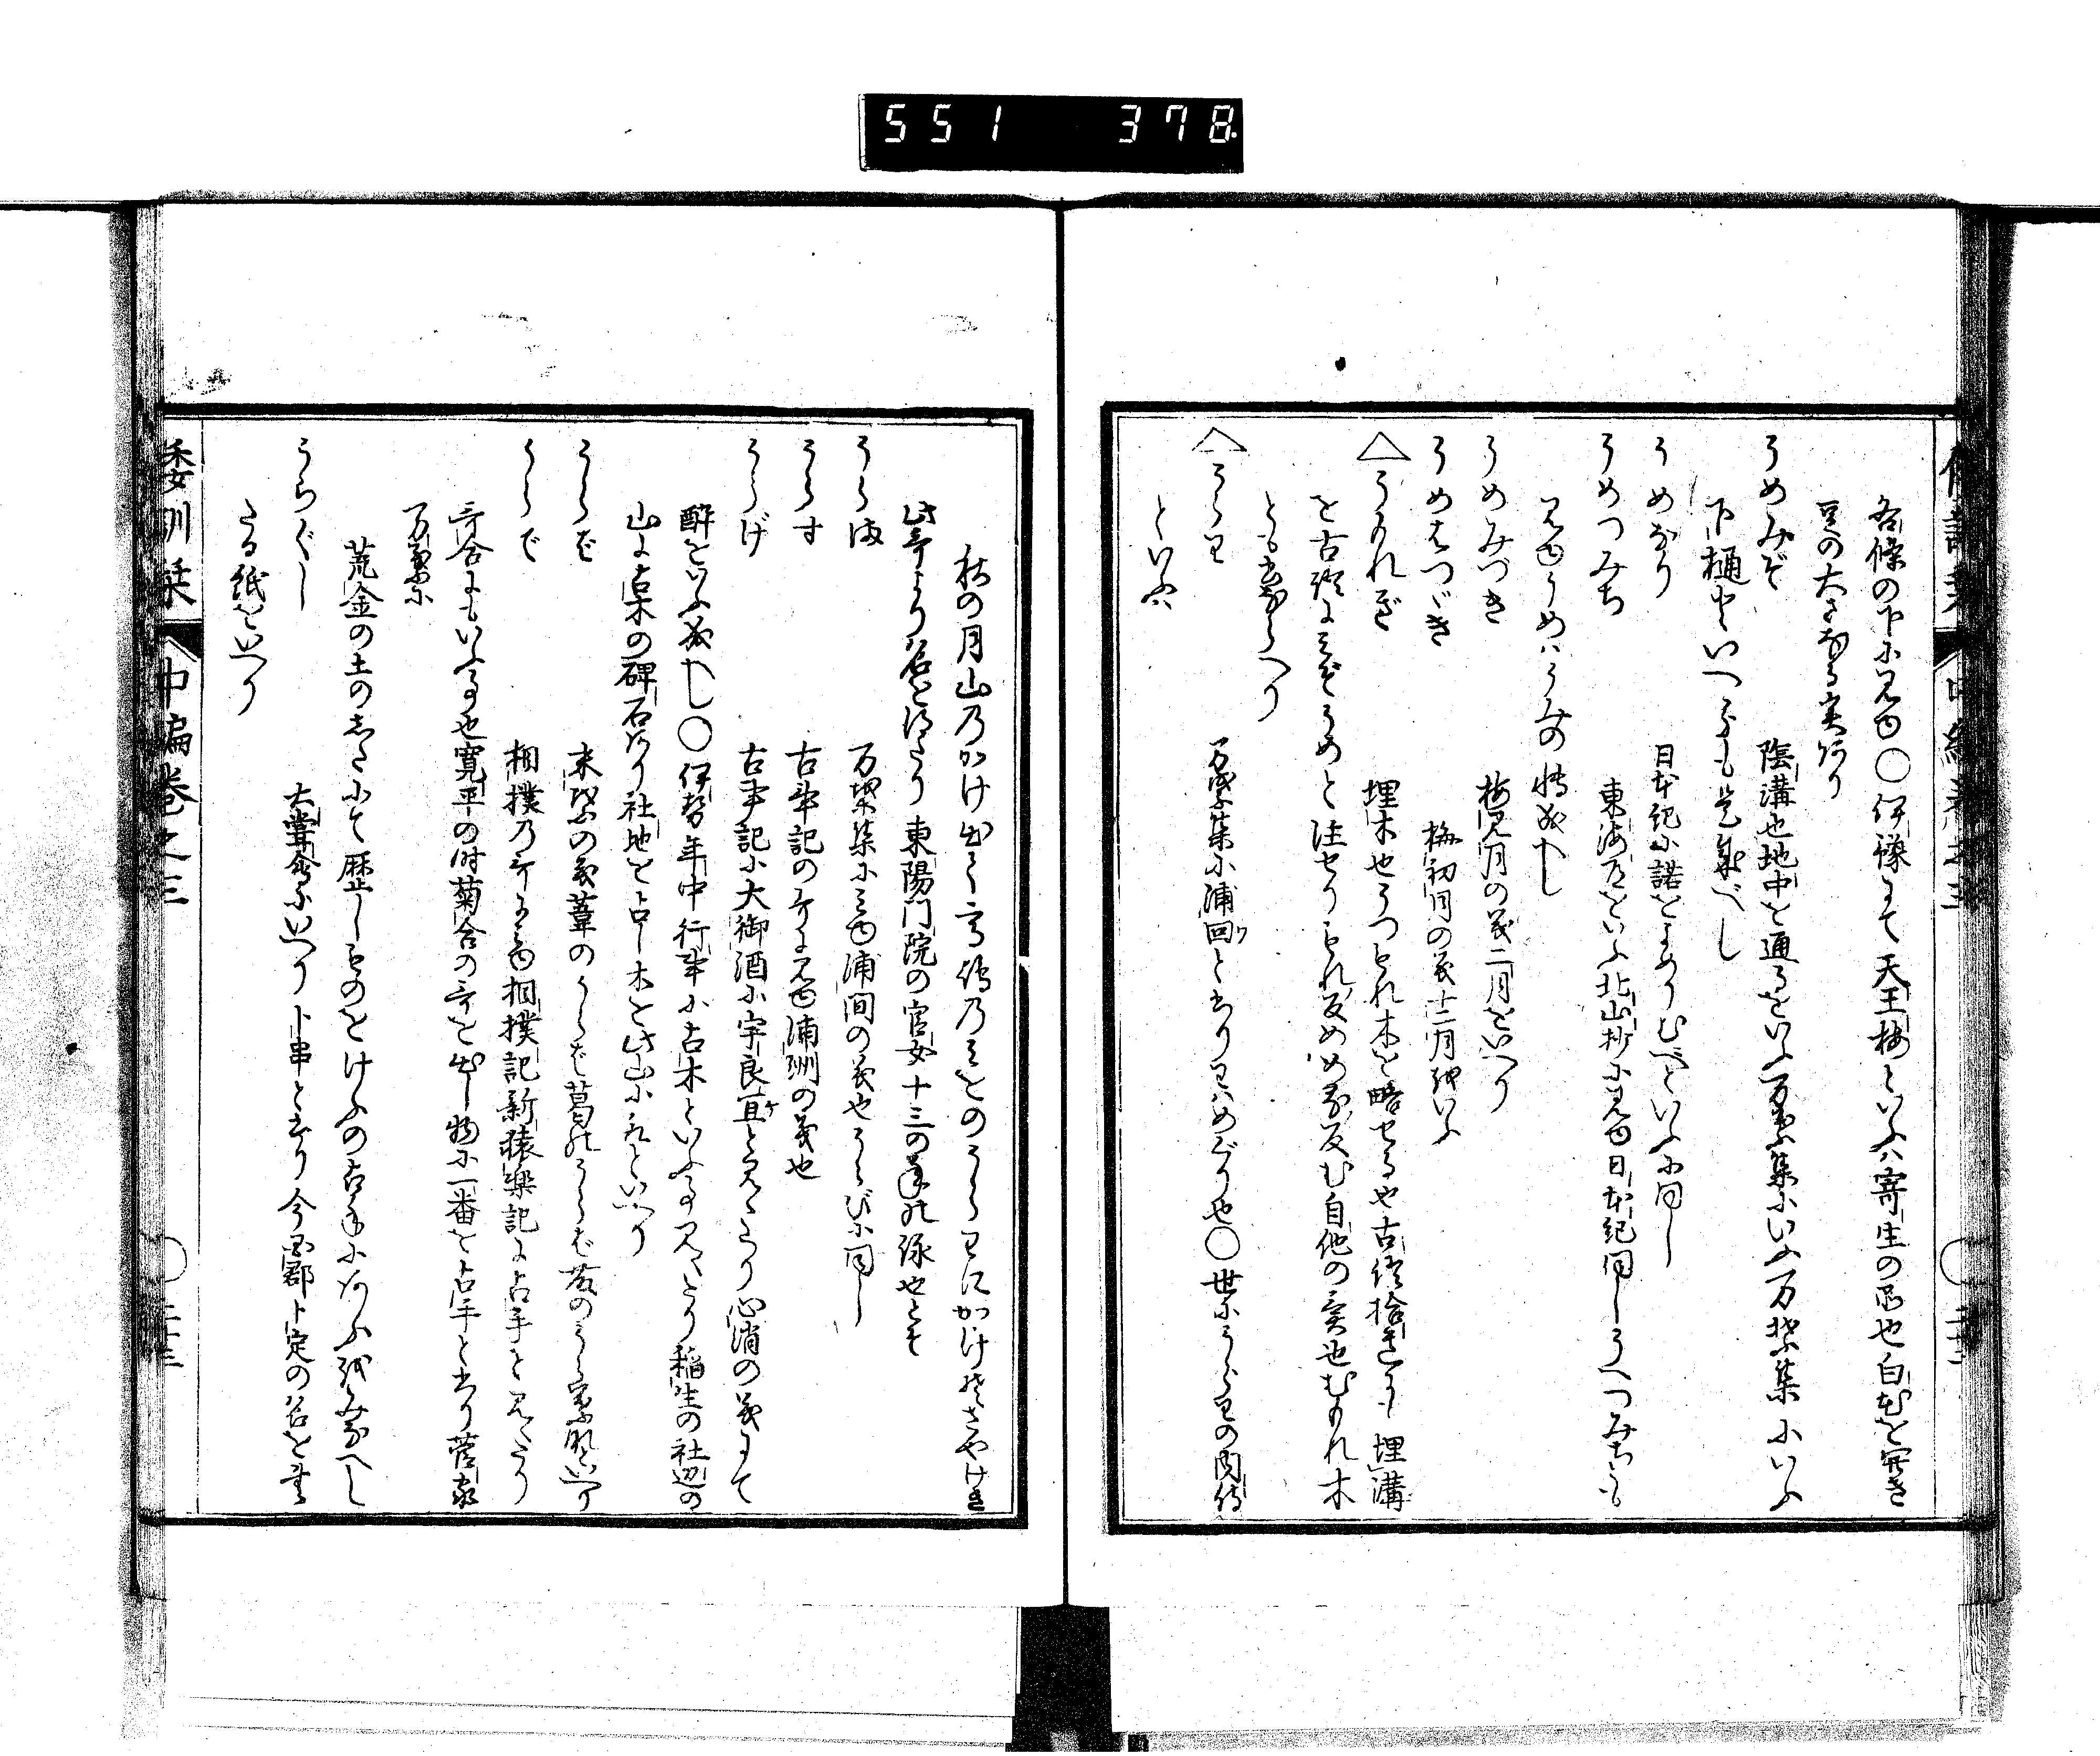 551 378
各條の下に見ゆ○伊豫にて天王梅といふハ寄生の品也白花を開き
豆の大さなる実あり
うめみぞ 陰溝也地中を通るをいふ万葉集にいふ
下樋といへるも是成べし
うめなり 日本紀に諾をよめりむべといふに同し
うめつみち 東海道をいふ北山抄に見ゆ日本紀同しうへつみちとも
見ゆうめハうみの轉成へし
うめみづき 梅見月の義二月をいへり
うめはつづき 梅初月の義十二月をいふ
△うもれぎ 埋木也うつもれ木を略せるや古今拾遺にも埋溝
を古徑にみぞうめと注せりもれ反めめな反む自他の異也むもれ木
とも書ならへり
△うらわ 万葉集に浦回とかりわハめぐり也○世にうらわの内侍
といふハ
秋の月山乃かけ出て高嶋乃みをのうらわにかけそさやけき
此哥より名を得たり東陽門院の官女十三の年の詠也とそ
うらま 万葉集にみゆ浦間の義也うらびに同し
うらす 古事記の哥に見ゆ浦洲の義也
うらげ 古事記に大御酒に宇良宜と見えたり心消の義にて
酔をいふ成へし○伊勢年中行事に占木といふ事見えたり稲生の社辺の
山に占木の碑石あり社地を占し木を此山にとるといへり
うらば 末葉の義葦のうらば葛のうらば荻のうら葉などいへり
うらて 相撲乃哥にみゆ相撲記新猿樂記に占手と見えたり
哥合にもいふ事也寛平の時菊合の哥を出し物に一番を占手とかり菅家
万葉に
荒金の土のしたにて歴しものをけふの占手にあふをみなへし
うらぐし 大嘗會にいへり卜串とかけり今国郡卜定の名を書
たる紙をいへり
倭訓栞 中編巻之三